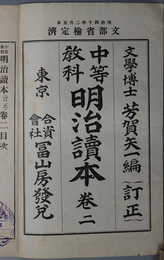 明治四十年二月五日
文部省檢定濟
文學博士 芳賀矢一編 訂正
中等
敎科
明治讀本 卷二
東京
合資
會社
冨山房發兌
明治讀本 訂正 卷二目次